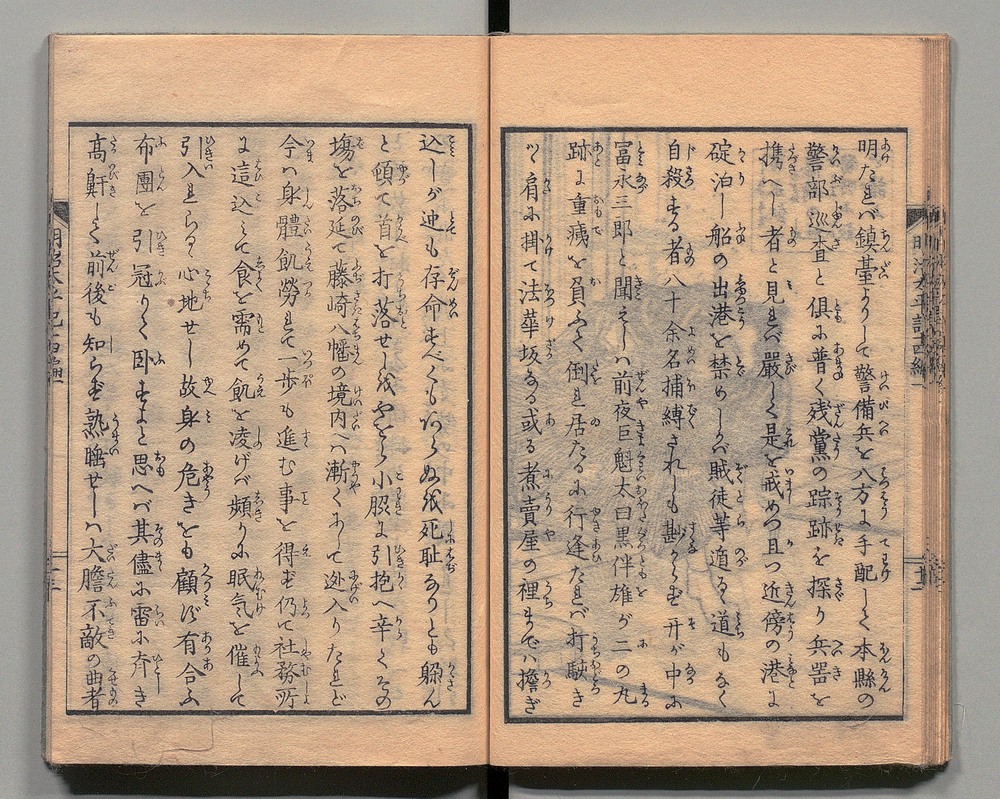 明たれバ鎮臺よりして警備兵を八方に手配して本縣の
警部巡査と倶に普く残黨の踪跡を探り兵器を
携へし者と見れバ嚴しく是を戒めつ且つ近傍の港に
碇泊し船の出港を禁めしかバ賊徒等遁るゝ道もなく
自殺する者八十余名捕縛されしも尠からず 中に
冨永三郎と聞えしハ前夜巨魁太田黒伴雄が二の丸
跡に重痍を負ふて倒れ居たるに行逢たれバ打駭き
ツ肩に掛て法華坂なる或る煮賣屋の裡までハ擔ぎ
込しが迚も存命すべくもあらぬ我死耻ありとも躱ん
と頼て首を打落せし我やをら小脇に引抱へ辛くその
塲を落延て藤崎八幡の境内へハ漸くにして迯入りたれど
今ハ身體飢勞れて一歩も進む事を得ず仍て社務所
に這込て食を需めて飢を凌げバ頻りに眠気を催して
引入れらるゝ心地せし故身の危きをも顧ず有合ふ
布團を引冠りて臥すよと思へバ其儘に雷に斉き
高鼾して前後も知らず熟睡せしハ大膽不敵の曲者
明治太平記十四編